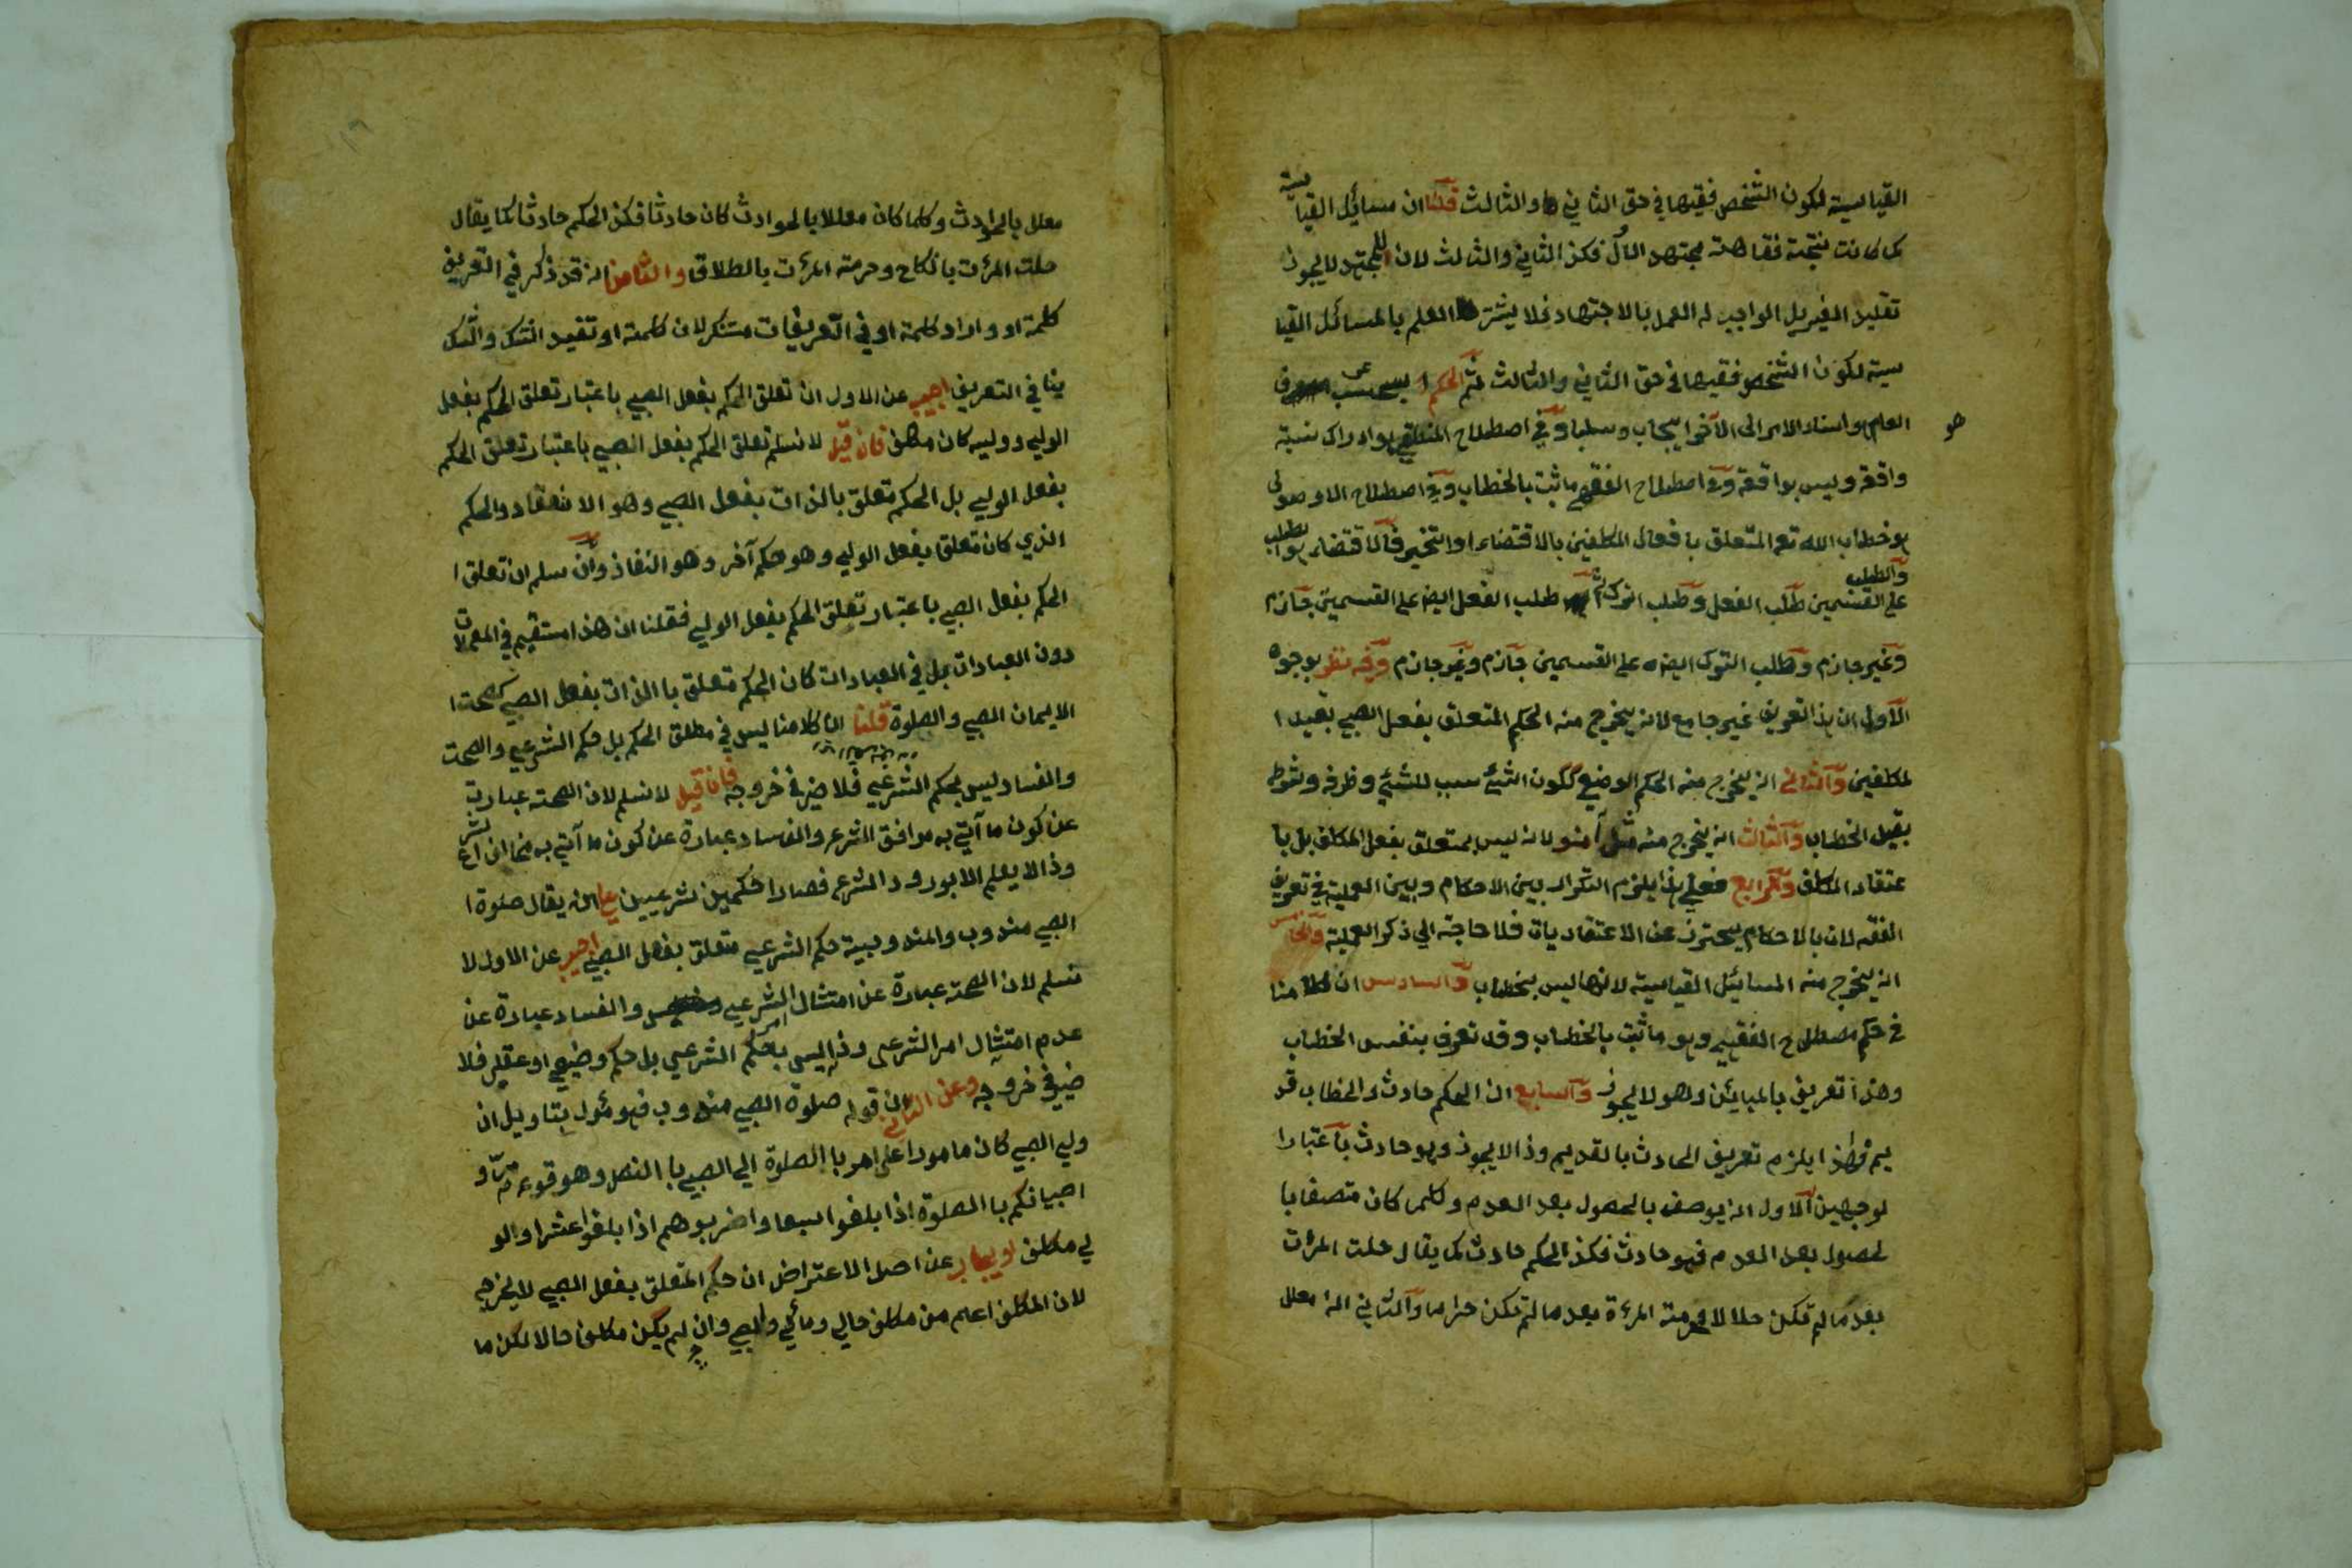 القياسية لكون الشخص فقيها في حق الثاني والثالث قلنا ان مسائل القياسية
كما كانت نتيجة فقاهة مجتهد الأول فكذا الثاني والثالث لان المجتهد لا يجوز
تقليد الغير بل الواجب له العمل بالاجتهاد فلا يشترط العلم بالمسائل القيا
سية لكون الشخص فقيها في حق الثاني والثالث ثم الحكم في عرف
العام هو اسناد الامر الى الآخر ايجاب وسلبا وفي اصطلاح المنطقي هو ادراك نسبة
واقعة وليس بواقعة وفي اصطلاح الفقهي ما ثبت بالخطاب وفي اصطلاح الاوصولي
هو خطاب الله تع المتعلق بافعال المكلفين بالاقتضاء او التخير فالاقتضاء هو الطلب
والطلب على القسمين طلب الفعل وطلب الترك ثم طلب الفعل ايضا على القسمين جازم
وغير جازم وطلب الترك ايضا على القسمين جازم وغير جازم وفيه نظر بوجوه
الاول ان هذا التعريف غير جامع لانه يخرج منه الحكم المتعلق بفعل الصبي بقيد ا
لمكلفين والثاني انه يخرج منه الحكم الوضعي ككون الشيئ سبب للشيئ وظرفه وشرط
بقيد الخطاب والثالث انه يخرج منه مثل آمنو لانه ليس بمتعلق بفعل المكلف بل با
عتقاد المكلف والرابع فعلي هذا يلزم التكرار بين الاحكام وبين العملية في تعريف
الفقه لان بالاحكام يحترز عن الاعتقاديات فلا حاجة الي ذكر العملية والخامس
انه يخرج منه المسائيل القياسية لانها ليس بخطاب والسادس ان كلامنا
في حكم مصطلح الفقهي وهو ما ثبت بالخطاب وقد تعرف بنفس الخطاب
وهذا تعريف بالمبائن وهو لا يجوز والسابع ان الحكم حادث والخطاب قد
يم فهذا يلزم تعريف الحادث بالقديم وذا لا يجوز وهو حادث باعتبارا
لوجهين الاول انه يوصف بالحصول بعد العدم وكلما كان متصفا با
لحصول بعد العدم فهو حادث فكذا الحكم حادث كما يقال حلت المرأت
بعد ما لم تكن حلالا وحرمة المرءة بعد ما لم تكن حراما والثاني انه معلل
معلل بالحوادث وكلما كان معللا بالحوادث كان حادثا فكذ الحكم حادثا كما يقال
حلت المرأت بانكاح وحرمة المرأت بالطلاق والثامن انه قد ذكر في التعريف
كلمة او و ايراد كلمة او في التعريفات مستنكر لان كلمة او تفيد الشك والشك
ينافي التعريف اجيب عن الاول ان تعلق الحكم بفعل الصبي باعتبار تعلق الحكم بفعل
الولي ووليه كان مكلف فان قيل لا نسلم تعلق الحكم بفعل الصبي باعتبار تعلق الحكم
بفعل الولي بل الحكم تعلق بالذات بفعل الصبي وهو الانعقاد والحكم
الذي كان تعلق بفعل الولي وهو حكم آخر وهو النفاذ وان سلم ان تعلق ا
لحكم بفعل الصبي باعتبار تعلق الحكم بفعل الولي فقلنا ان هذا مستقيم في المعملات
دون العبادات بل في العبادات كان الحكم متعلق باالذات بفعل الصبي كصحت ا
الايمان الصبي والصلوة قلنا ان كلامنا ليس في مطلق الحكم بل حكم الشرعي والصحت
والفساد ليس بحكم الشرعي فلا ضير في خروجه فان قيل لا نسلم لان الصحة عبارت
عن كون ما آتي به موافق الشرع والفساد عبارة عن كون ما آتي به مخالف الشرع
وذا لا يعلم الا بورود الشرع فصارا حكمين شرعيين علي انه يقال صلوة ا
الصبي مندوب والمندوبية حكم الشرعي متعلق بفعل الصبي اجيب عن الاول لا
نسلم لان الصحة عبارة عن امتثال امر الشرعي والفساد عبارة عن
عدم امتثال امر الشرعي وذا ليس بحكم الشرعي بل حكم وضعي او عقلي فلا
ضير في خروجه وعن الثاني ان قوله صلوة الصبي مندوب فهو مئول بتاويل ان
ولي الصبي كان مامورا على امر باالصلوة الي الصبي باالنص وهو قوله مرو
اصبيانكم باالصلوة اذا بلغوا سبعا واضربوهم اذا بلغوا عشرا والو
لي مكلف او يجاب عن اصل الاعتراض ان حكم المتعلق بفعل الصبي لا يخرج
لان المكلف اعلم من مكلف حالي ومآلي والصبي وان لم يكن مكلف حالا لكن ما